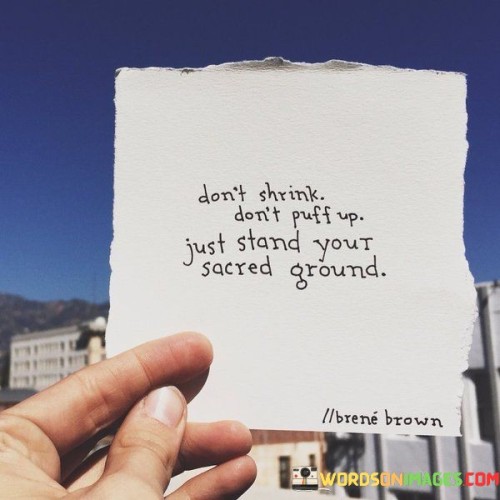 don't shrink.
don't puff up.
just stand your
sacred ground.
//brené brown
WORDSONIMAGES.COM